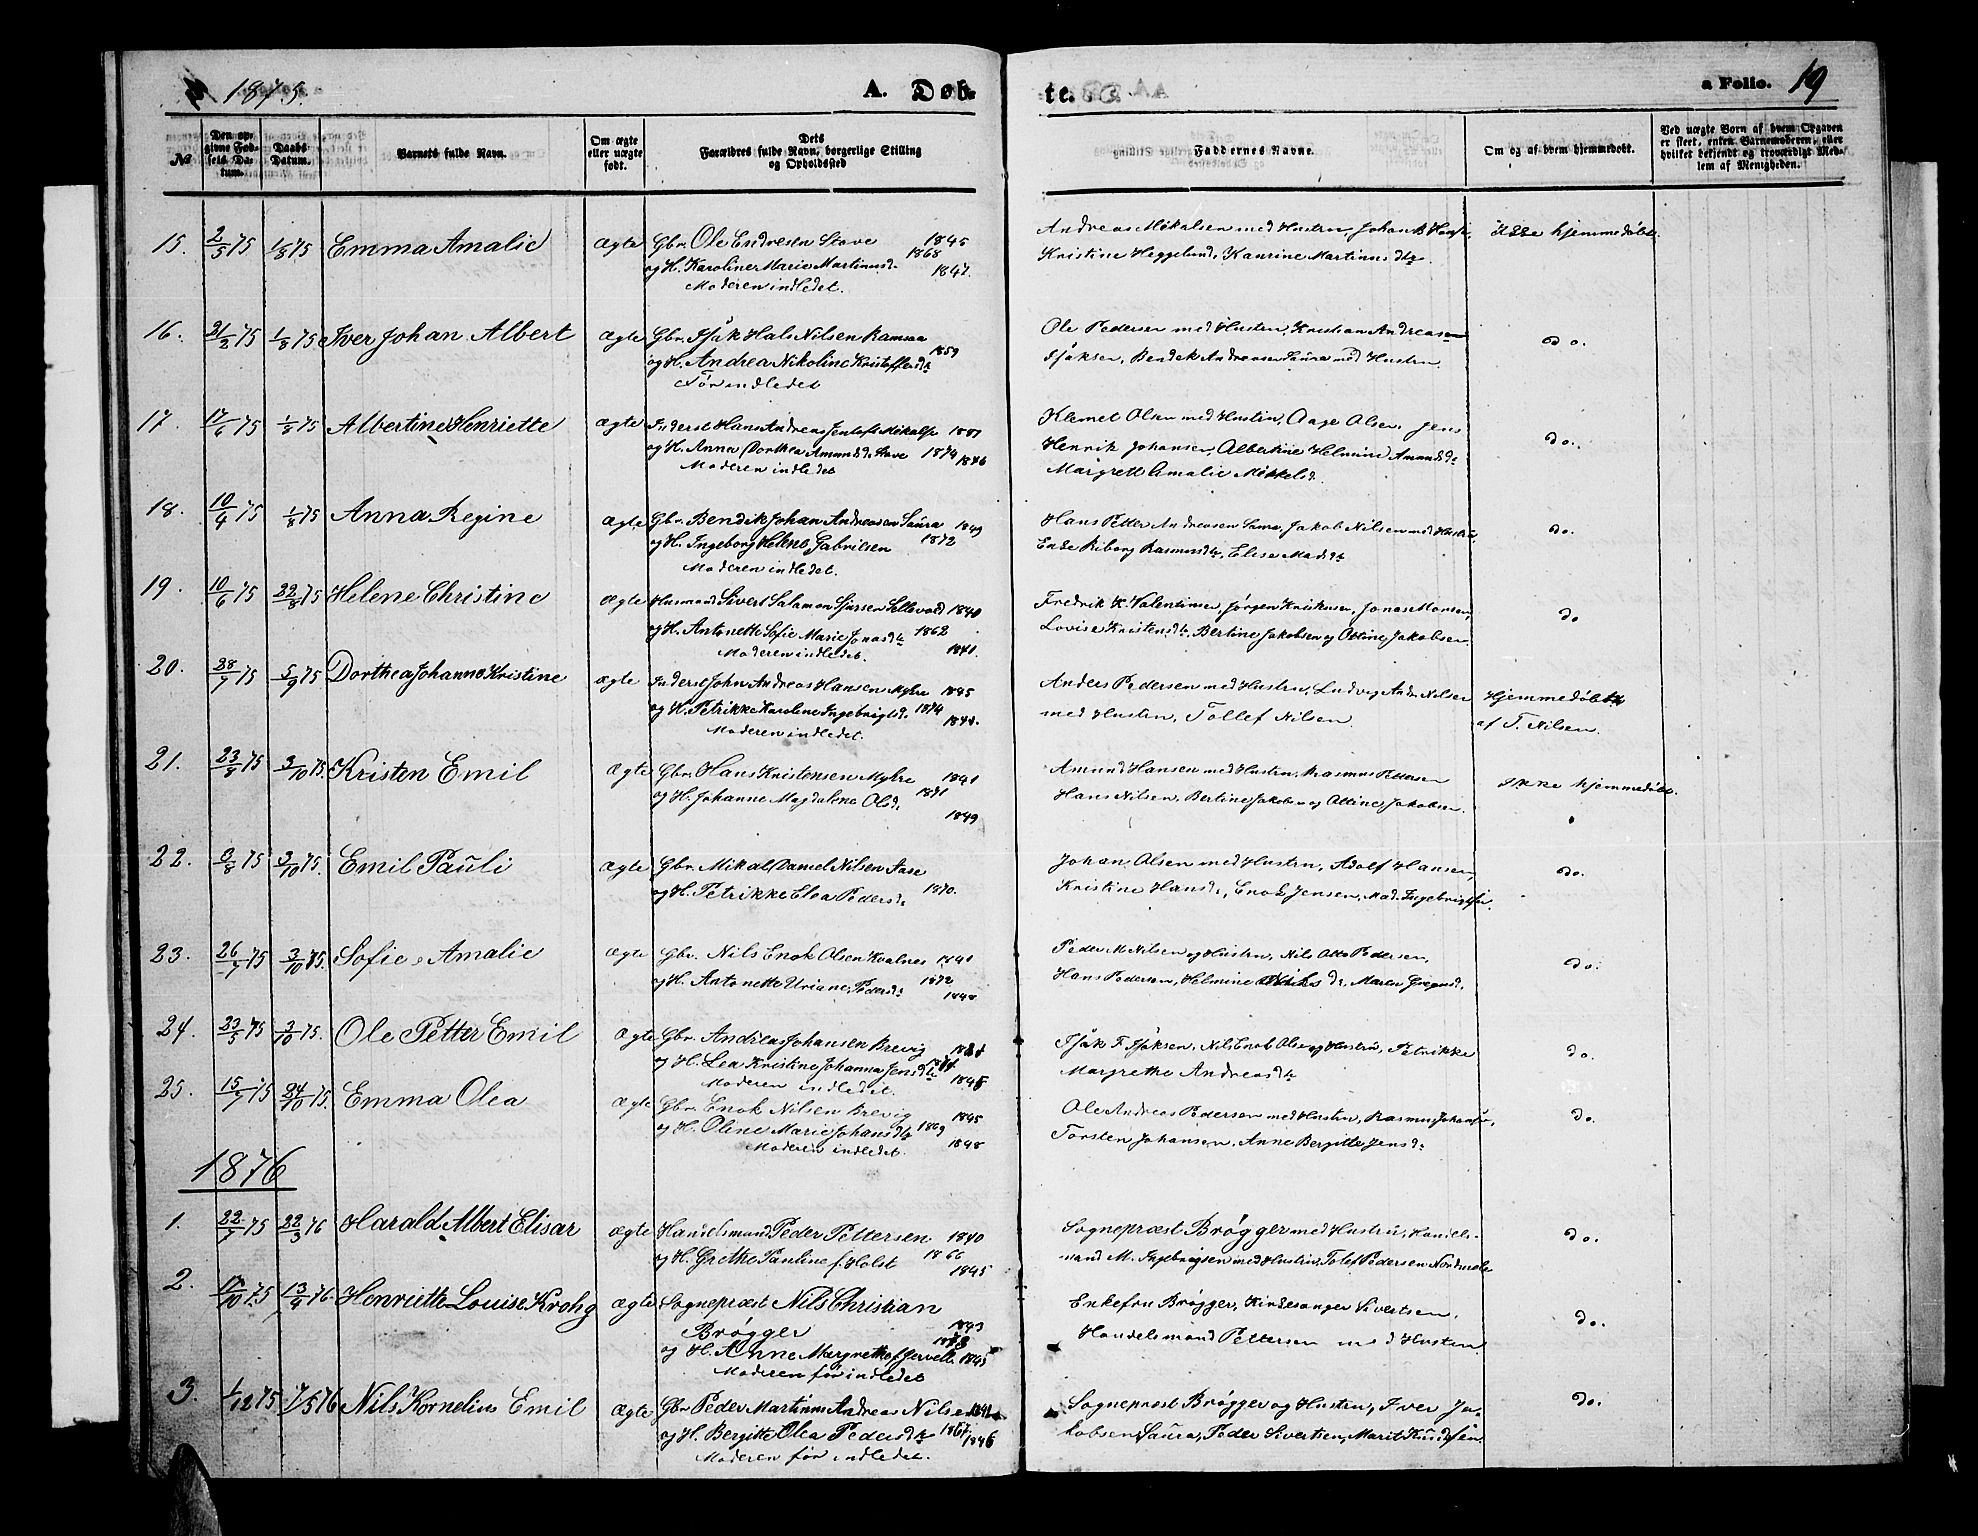 1875.
A. Døb-
te.
a Folio. 19
No
Den op-
givne Fød-
sels Da-
tum.
Daabs
Datum.
Barnets fulde Navn.
Om ægte
eller uægte
født.
Dets
Forældres fulde Navn, borgerlige Stilling
og Opholdssted
Faddernes Navne.
Om og af hvem hjemmedøbt.
Ved uægte Born af hvem Opgaven
er skeet, enten Barnemoderen, eller
hvilket bekjendt og troværdigt Med-
lem af Menigheden.
15. 2/5 75 1/8 75 Emma Amalie ægte Gbr. Ole Endresen Stave 1845
1868
og H. Karoline Marie Martinusd. 1847.
Moderen indledet.
Andreas Mikalsen med Hustru, Johan B
Kristine Heggelund, Kanrine Martinusdtr.
Ikke hjemmedøbt.
16. 21/2 75 1/8 75 Iver Johan Albert ægte Gbr. Isak Hals Nilsen Ramsaa
og H. Andrea Nikoline Kristoffersdtr 1859
Før indledet
Ole Pedersen med Hustru, Kristian Andreasen
Isaksen, Bendik Andreasen Saura med Hustru
do.
17. 17/6 75 1/8 75 Albertine Henriette ægte Inderst Hans Andreas Jentoft Mikals.
og H. Anna Dorthea Amundsd. Stave 1874 1846
Moderen indledet
Klemet Olsen med Hustru, Aage Olsen, Jens
Henrik Johansen, Albertine Helmine Amundsdtr
Margrett Amalie Mikkelsd.
do.
18. 10/4 75 1/8 75 Anna Regine ægte Gbr. Bendik Johan Andreasen Saura 1849
og H. Ingeborg Helene Gabrielsen 1872
Moderen indledet.
Hans Petter Andreasen Saura, Jakob Nilsen med Hustru,
Enke Riborg Rasmusdtr, Elise Madsdtr
do.
19. 10/6 75 22/8 75 Helene Christine ægte Husmand Sivert Salamon Sjursen Sellevold 1840
og H. Antonette Sofie Marie Jonasdtr 1862
Moderen indledet. 1841.
Fredrik K. Valentinsen, Jørgen Kristiansen, Jonas Monsen,
Lovise Kristensdtr, Bertine Jakobsen og Ottine Jakobsen
do
20. 28/7 75 5/9 75 Dorthea Johanne Kristine ægte Inderst John Andreas Hansen Myhre 1845
og H. Petrikke Karoline Ingebrigtsd. 1874
Moderen indledet.
Anders Pedersen med Hustru, Ludvig Andr. Nilsen
med Hustru, Tollef Nilsen
Hjemmedøbt
af T. Nilsen.
21. 23/8 75 3/10 75. Kristen Emil ægte Gbr. Hans Kristensen Myhre 1841
og H. Johanne Magdalene Olsd. 1871
1849
Amund Hansen med Hustru, Rasmus Pettersen
Hans Nilsen, Bertine Jakobsen og Ottine Jakobsen.
Ikke hjemmedøbt.
22. 8/8 75 3/10 75. Emil Pauli ægte Gbr. Mikal Daniel Nilsen Aase
og H. Petrikke Elea Pedersd. 1870.
Johan Olsen med Hustru, Adolf Hansen,
Kristine Hansd., Enok Jensen, Mad. Ingebrigtsen.
do.
23. 26/7 75 3/10 75. Sofie Amalie ægte Gbr. Nils Enok Olsen Kvalnes 1841
og H. Antonette Uriane Pedersd. 1872
1848
Peder M. Nilsen og Hustru, Nils Otto Pedersen,
Hans Pedersen, Helmine Nilsd., Maren Gregusd.
do.
24. 23/5 75 3/10 75. Ole Petter Emil ægte Gbr. Andreas Johansen Brevig
og H. Lea Kristine Johanna Jensdtr
Moderen indledet
Isak F. Isaksen, Nils Enok Olsen og Hustru, Petrikke
Margrethe Andreasdtr
do.
25. 15/7 75 24/10 75. Emma Olea ægte Gbr. Enok Nilsen Brevig 1845
og H. Oline Marie Johansdtr 1869
Moderen indledet. 1848
Ole Andreas Pedersen med Hustru, Rasmus Johansen,
Torsten Johansen, Anne Bergitte Jensd.
do.
1876
1. 22/7 75 22/3 76 Harald Albert Elisar ægte Handelsmand Peder Pettersen 1840
og H. Grethe Pauline f. Holst 1866
1845
Sogneprest Brøgger med Hustru, Handels-
mand M. Ingebrigtsen med Hustru, Tolef Pedersen Nordmela
do.
2. 17/10 75. 13/4 76. Henriette Louise Krohg ægte Sogneprest Nils Christian
Brøgger 1843
og H. Anne Margrethe f. Jervell 1845
Moderen før indledet
Enkefru Brøgger, Kirkesanger Sivertsen,
Handelsmand Pettersen med Hustru
do.
3. 1/12 75 7/5 76 Nils Kornelius Emil ægte Gbr Peder Martinus Andreas Nilsen
og H. Bergitte Olea Pedersdtr 1867 1846
Moderen før indledet.
Sogneprest Brøgger og Hustru, Iver Ja-
kobsen Saura, Peder Sivertsen, Marit Knudsen.
do.